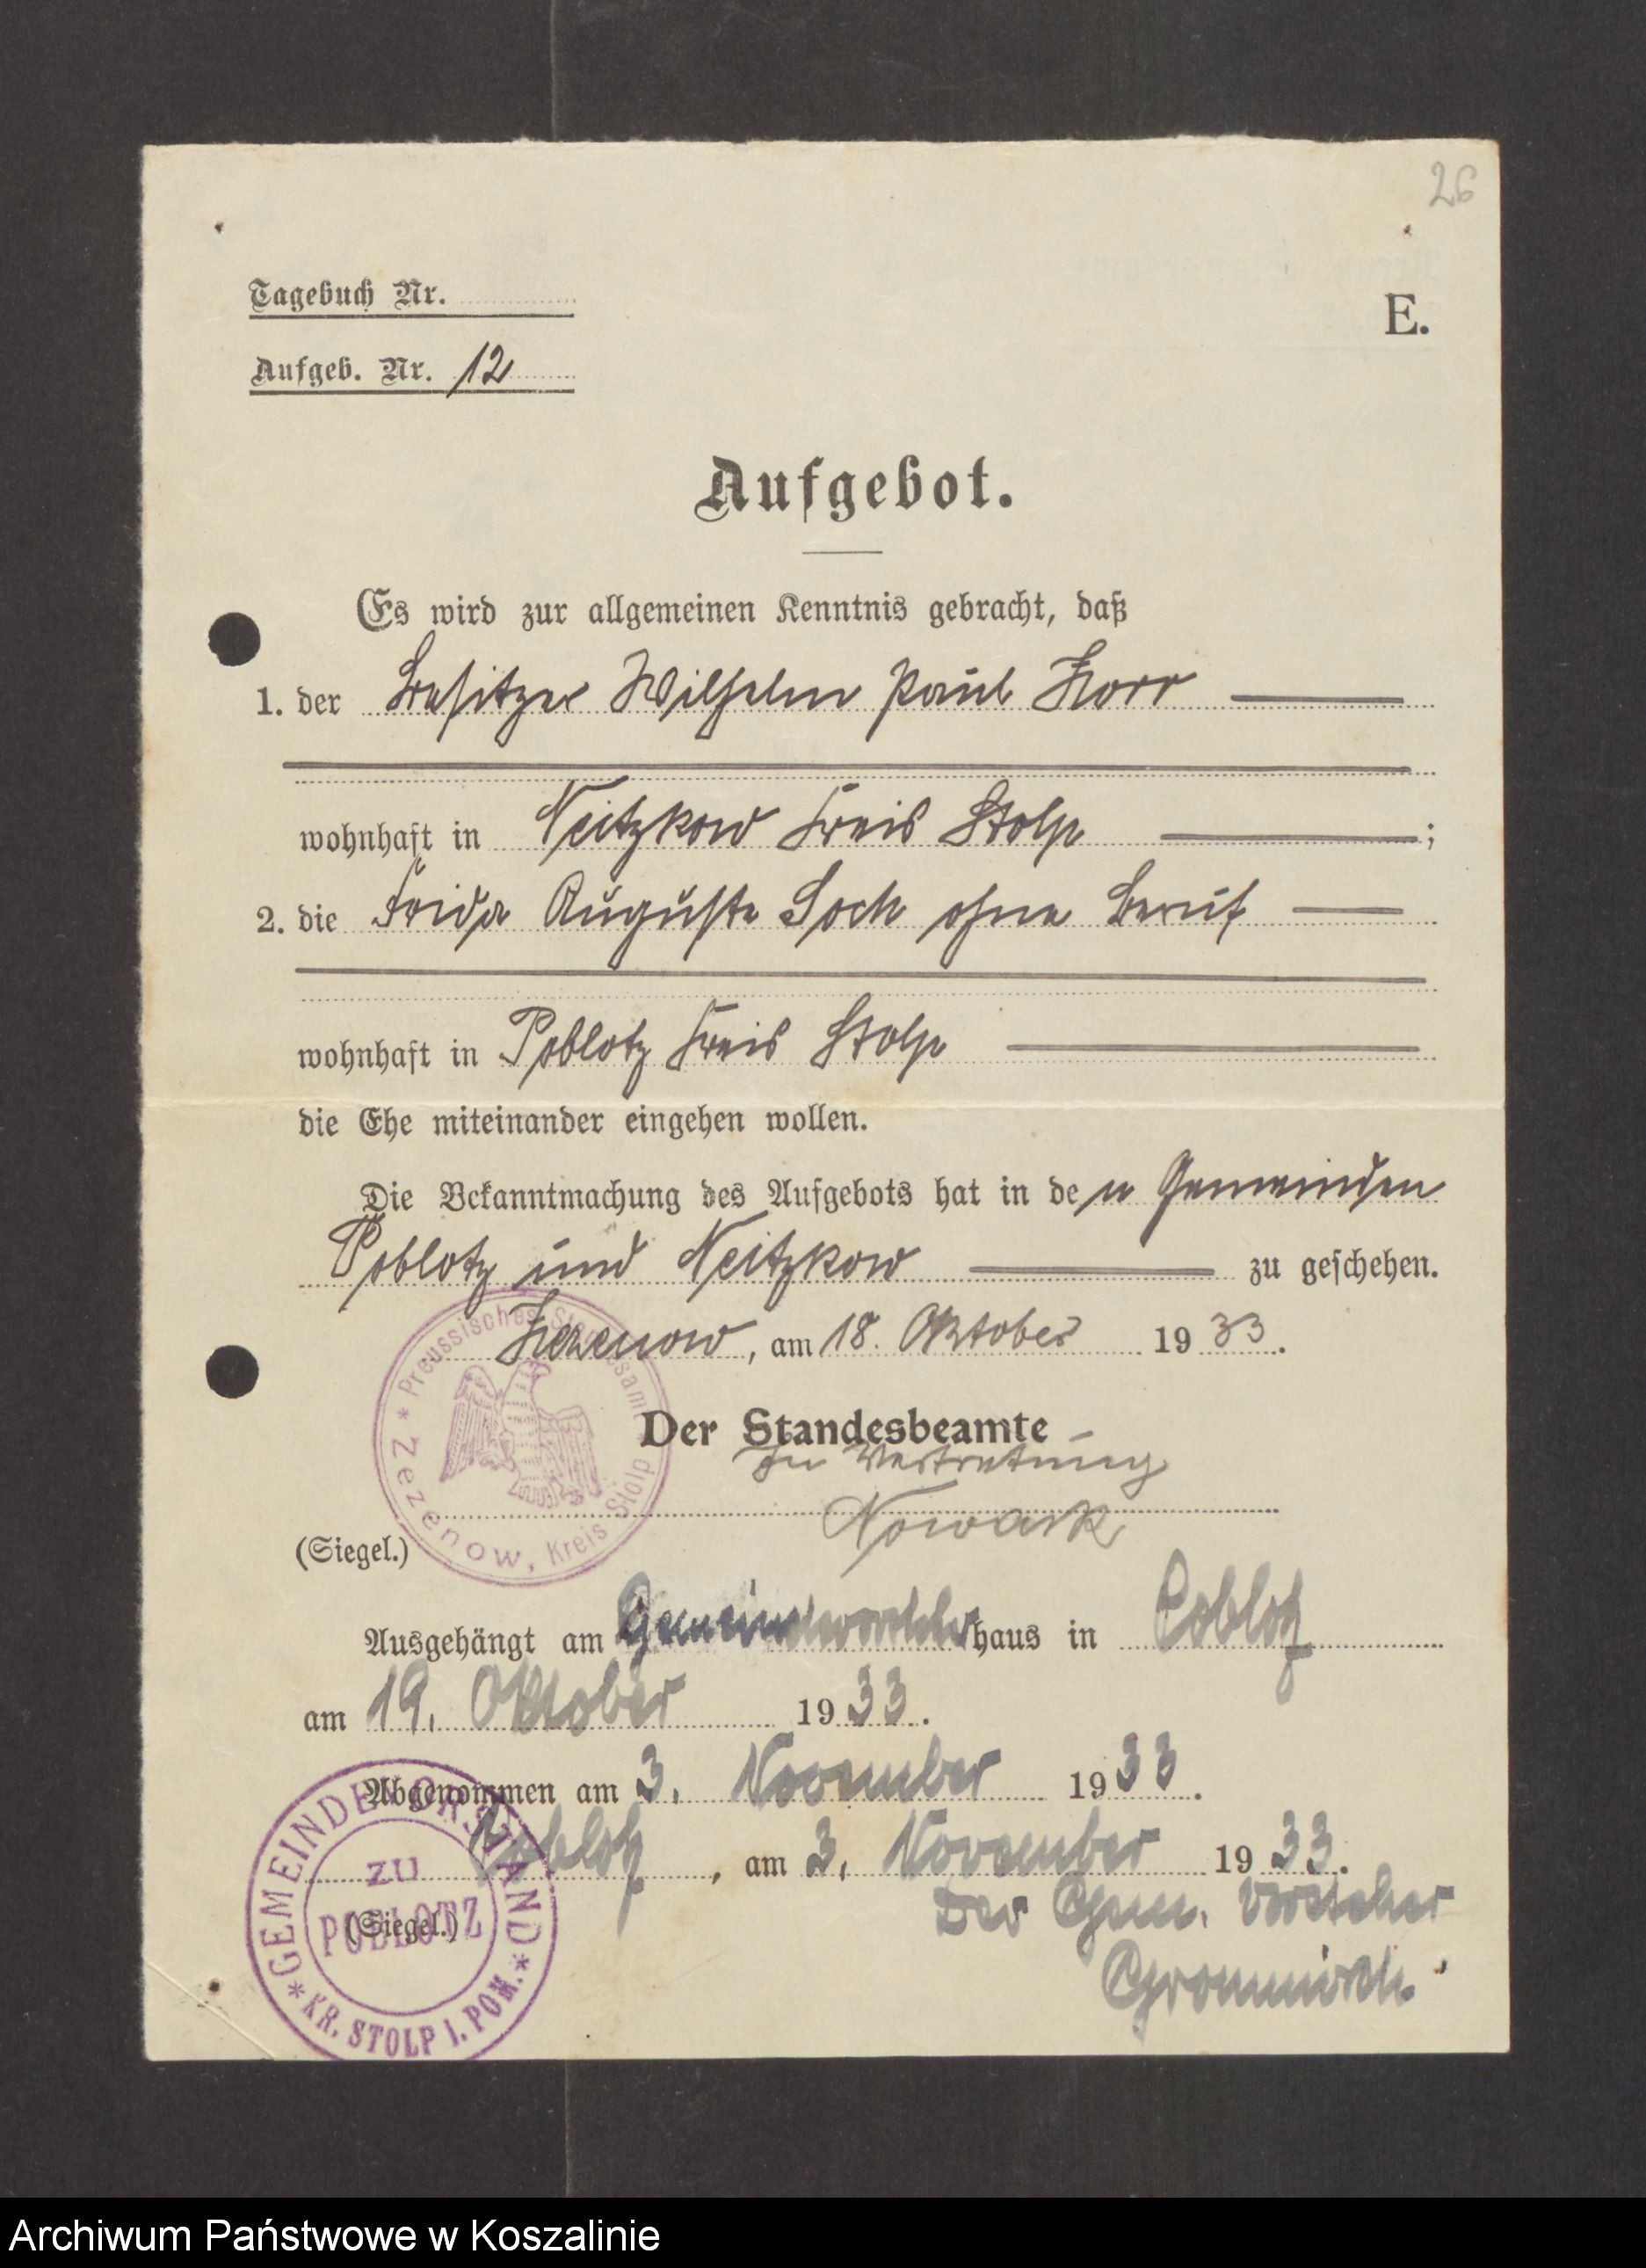 26
Tagebuch Nr.
E.
Aufgeb. Nr. 12
Aufgebot.
Es wird zur allgemeinen Kenntnis gebracht, daß
1. der Besitzer Wilhelm Paul
wohnhaft in Neitzkow Kreis Stolp ;
2. die Frida Auguste Koch ohne Beruf
wohnhaft in Poblotz Kreis Stolp
die Ehe miteinander eingehen wollen.
Die Bekanntmachung des Aufgebots hat in den Gemeinden
Poblotz und Neitzkow zu geschehen.
Zezenow, am 18. Oktober 1933.
Preussisches Standesamt
* Zezenow, Kreis Stolp
Der Standesbeamte
In Vertretung
Nowack
(Siegel.)
Ausgehängt am haus in Poblotz
am 19. Oktober 1933.
Abgenommen am 3. November 1933.
Poblotz, am 3. November 1933.
Der Gem. Vorsteher
(Siegel.)
GEMEINDEVORSTAND
ZU
POBLOTZ
* KR. STOLP I. POM. *
Archiwum Państwowe w Koszalinie